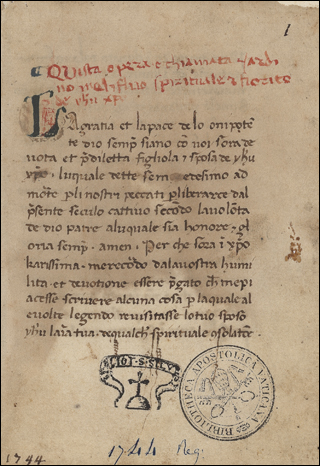 1
Questa opera e chiamata Jardi
no melifluo spirituale & fiorito
de yhu xpo
La gratia et la pace de lo onipotē
te dio semp̄ siano cō noi sora de
uota et p̄diletta figliola & sposa de yhu
xp̄o. lu quale dette sem etesimo ad
morte pli nostri peccati p liberarce dal
p̄sente seculo cattiuo secōdo la uolōta
de dio patre alu quale sia honore & glo
ria semp̄ . amen . Per che sora i xp̄o
karissima . me recōdo dala uostra humi
lita . et deuotione essere p̄gato ch̄ me pi
acesse scriuere alcuna cosa p la quale al
e uolte legendo reuisitasse lo tuo sposo
yhu
spirituale cōsolatōe.
BIBLIOTHECA APOSTOLICA VATICANA
1744
1744 Reg.